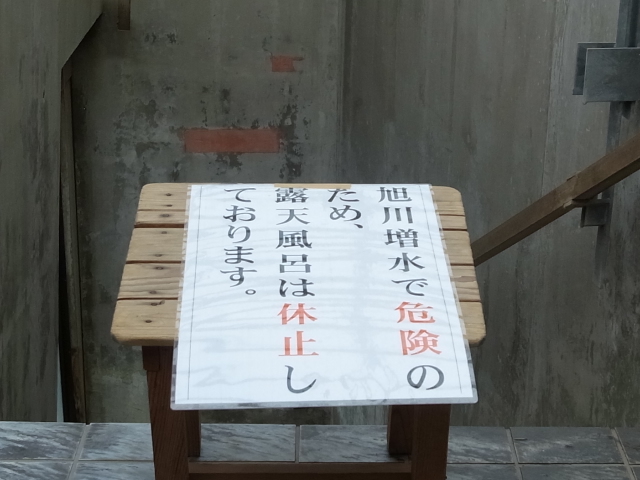 旭川増水で危険の
ため、
露天風呂は休止し
ております。